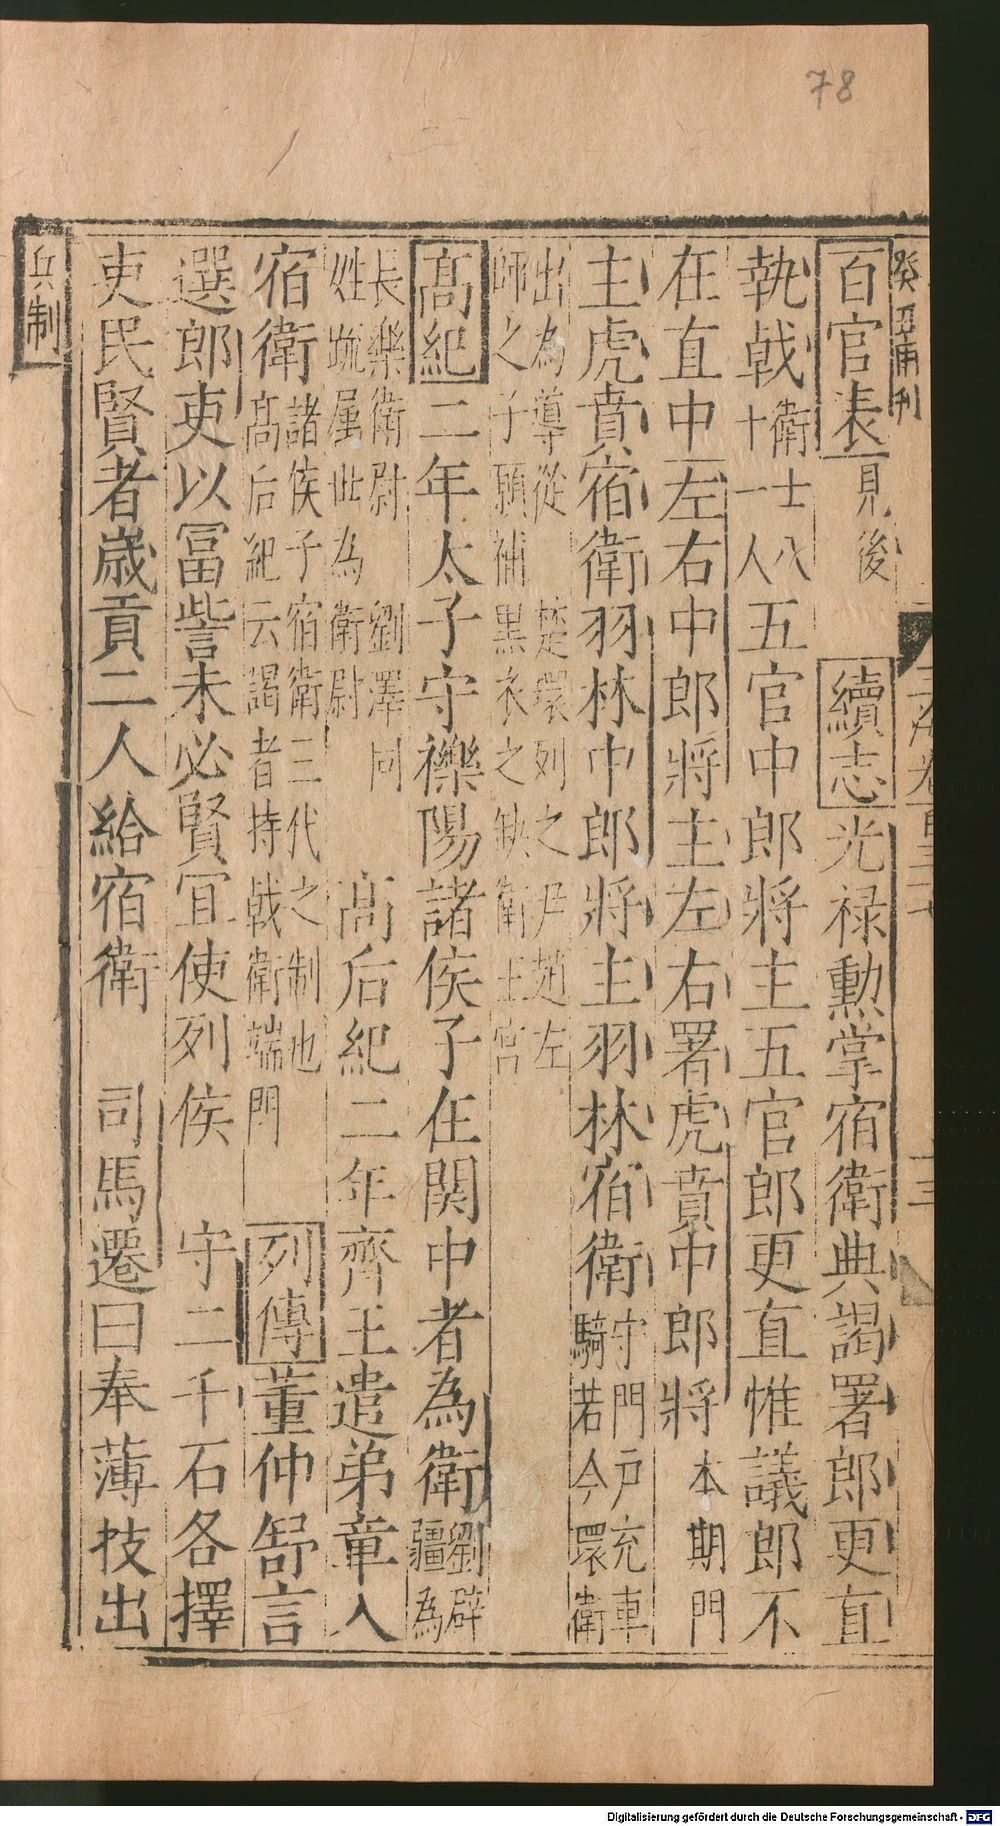 78
癸丑甫刊
百官表見後 續志光禄勲掌宿衛典謁署郎更直
執戟衛士八十一人五官中郎將主五官郎更直惟議郎不
在直中左右中郎將主左右署虎賁中郎將本期門
主虎賁宿衛羽林中郎將主羽林宿衛守門戸充車騎若今環衛
出為導從 楚環列之尹趙左師之子願補黒衣之缺衛王宮
髙紀二年太子守櫟陽諸侯子在関中者為衛劉辟疆為
長樂衛尉 劉澤同姓䟽属此為衛尉 髙后紀二年齊王遣弟章入
宿衛諸侯子宿衛三代之制也髙后紀云謁者持戟衛端門 列傳董仲舒言
選郎吏以冨訾未必賢宜使列侯 守二千石各擇
吏民賢者歳貢二人給宿衛 司馬遷曰奉薄技出
兵制
Digitalisierung gefördert durch die Deutsche Forschungsgemeinschaft - DFG